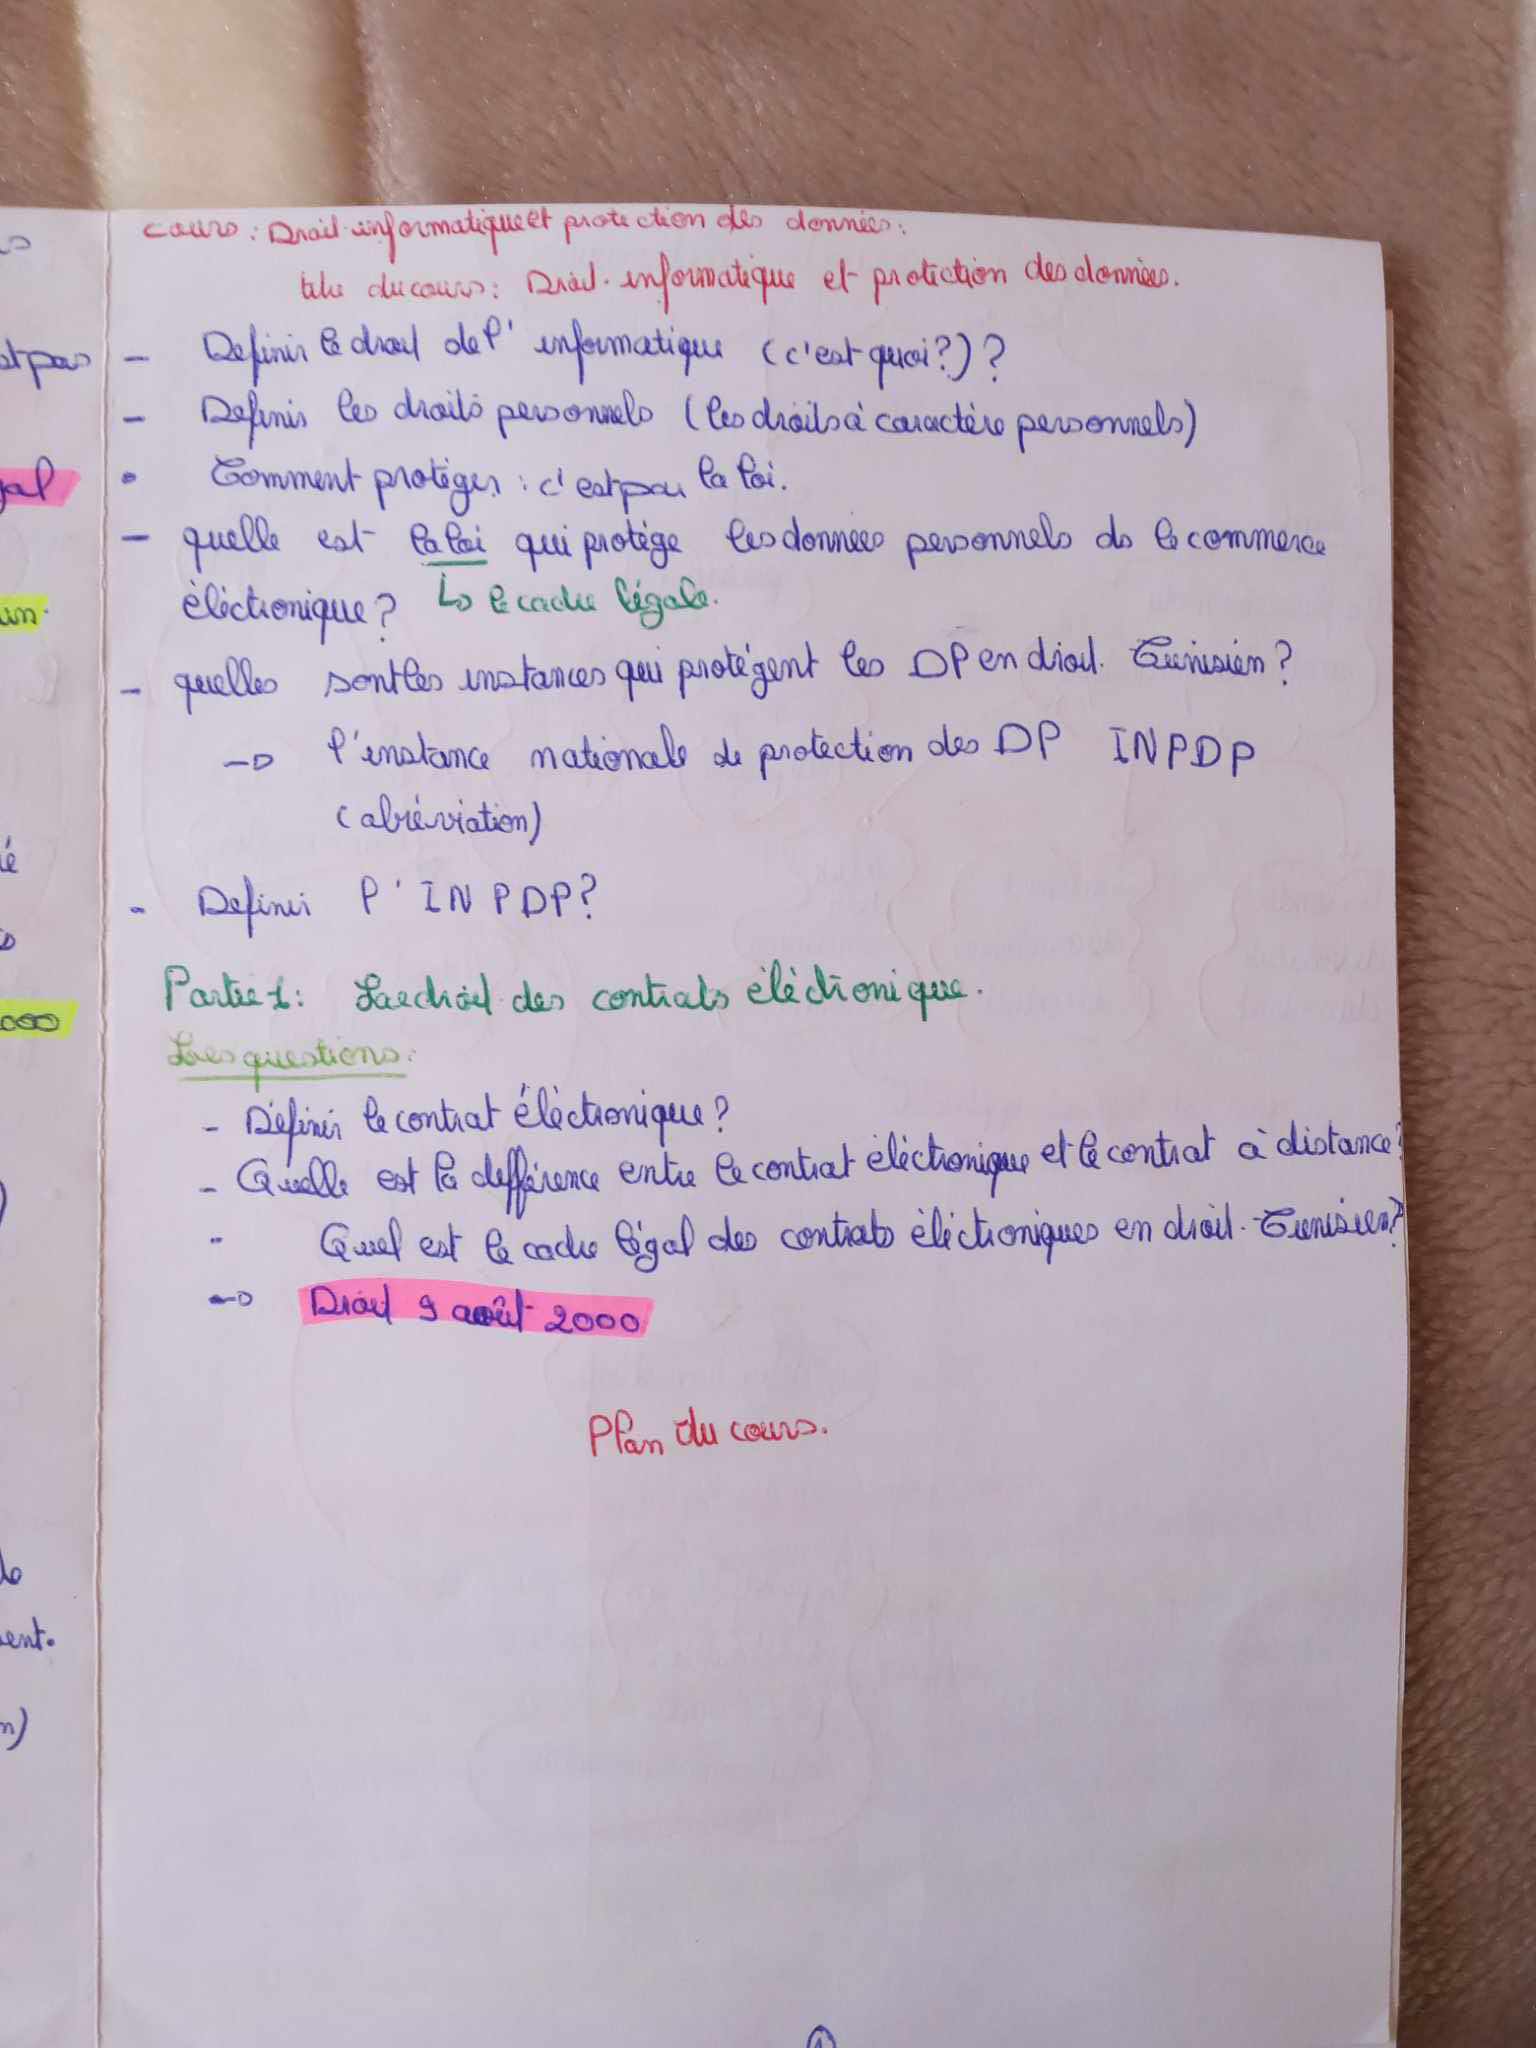 cours : Droit informatique et protection des données.
titre du cours : Droit informatique et protection des données.
- Definir le droit de l'informatique (c'est quoi ?) ?
- Definir les droits personnels (les droits à caractère personnels)
• Comment protéger : c'est par la loi.
- quelle est la loi qui protége les données personnels ds le commerce
éléctronique ? ↳ le cadre légale.
- quelles sont les instances qui protégent les DP en droit Tunisien ?
→ l'instance nationale de protection des DP INPDP
(abréviation)
- Definir l'INPDP ?
Partie 1 : Le droit des contrats éléctronique.
Les questions :
- Définir le contrat éléctronique ?
- Quelle est la defférence entre le contrat éléctronique et le contrat à distance ?
- Quel est le cadre légal des contrats éléctroniques en droit Tunisien ?
→ Droit 9 août 2000
Plan du cours.